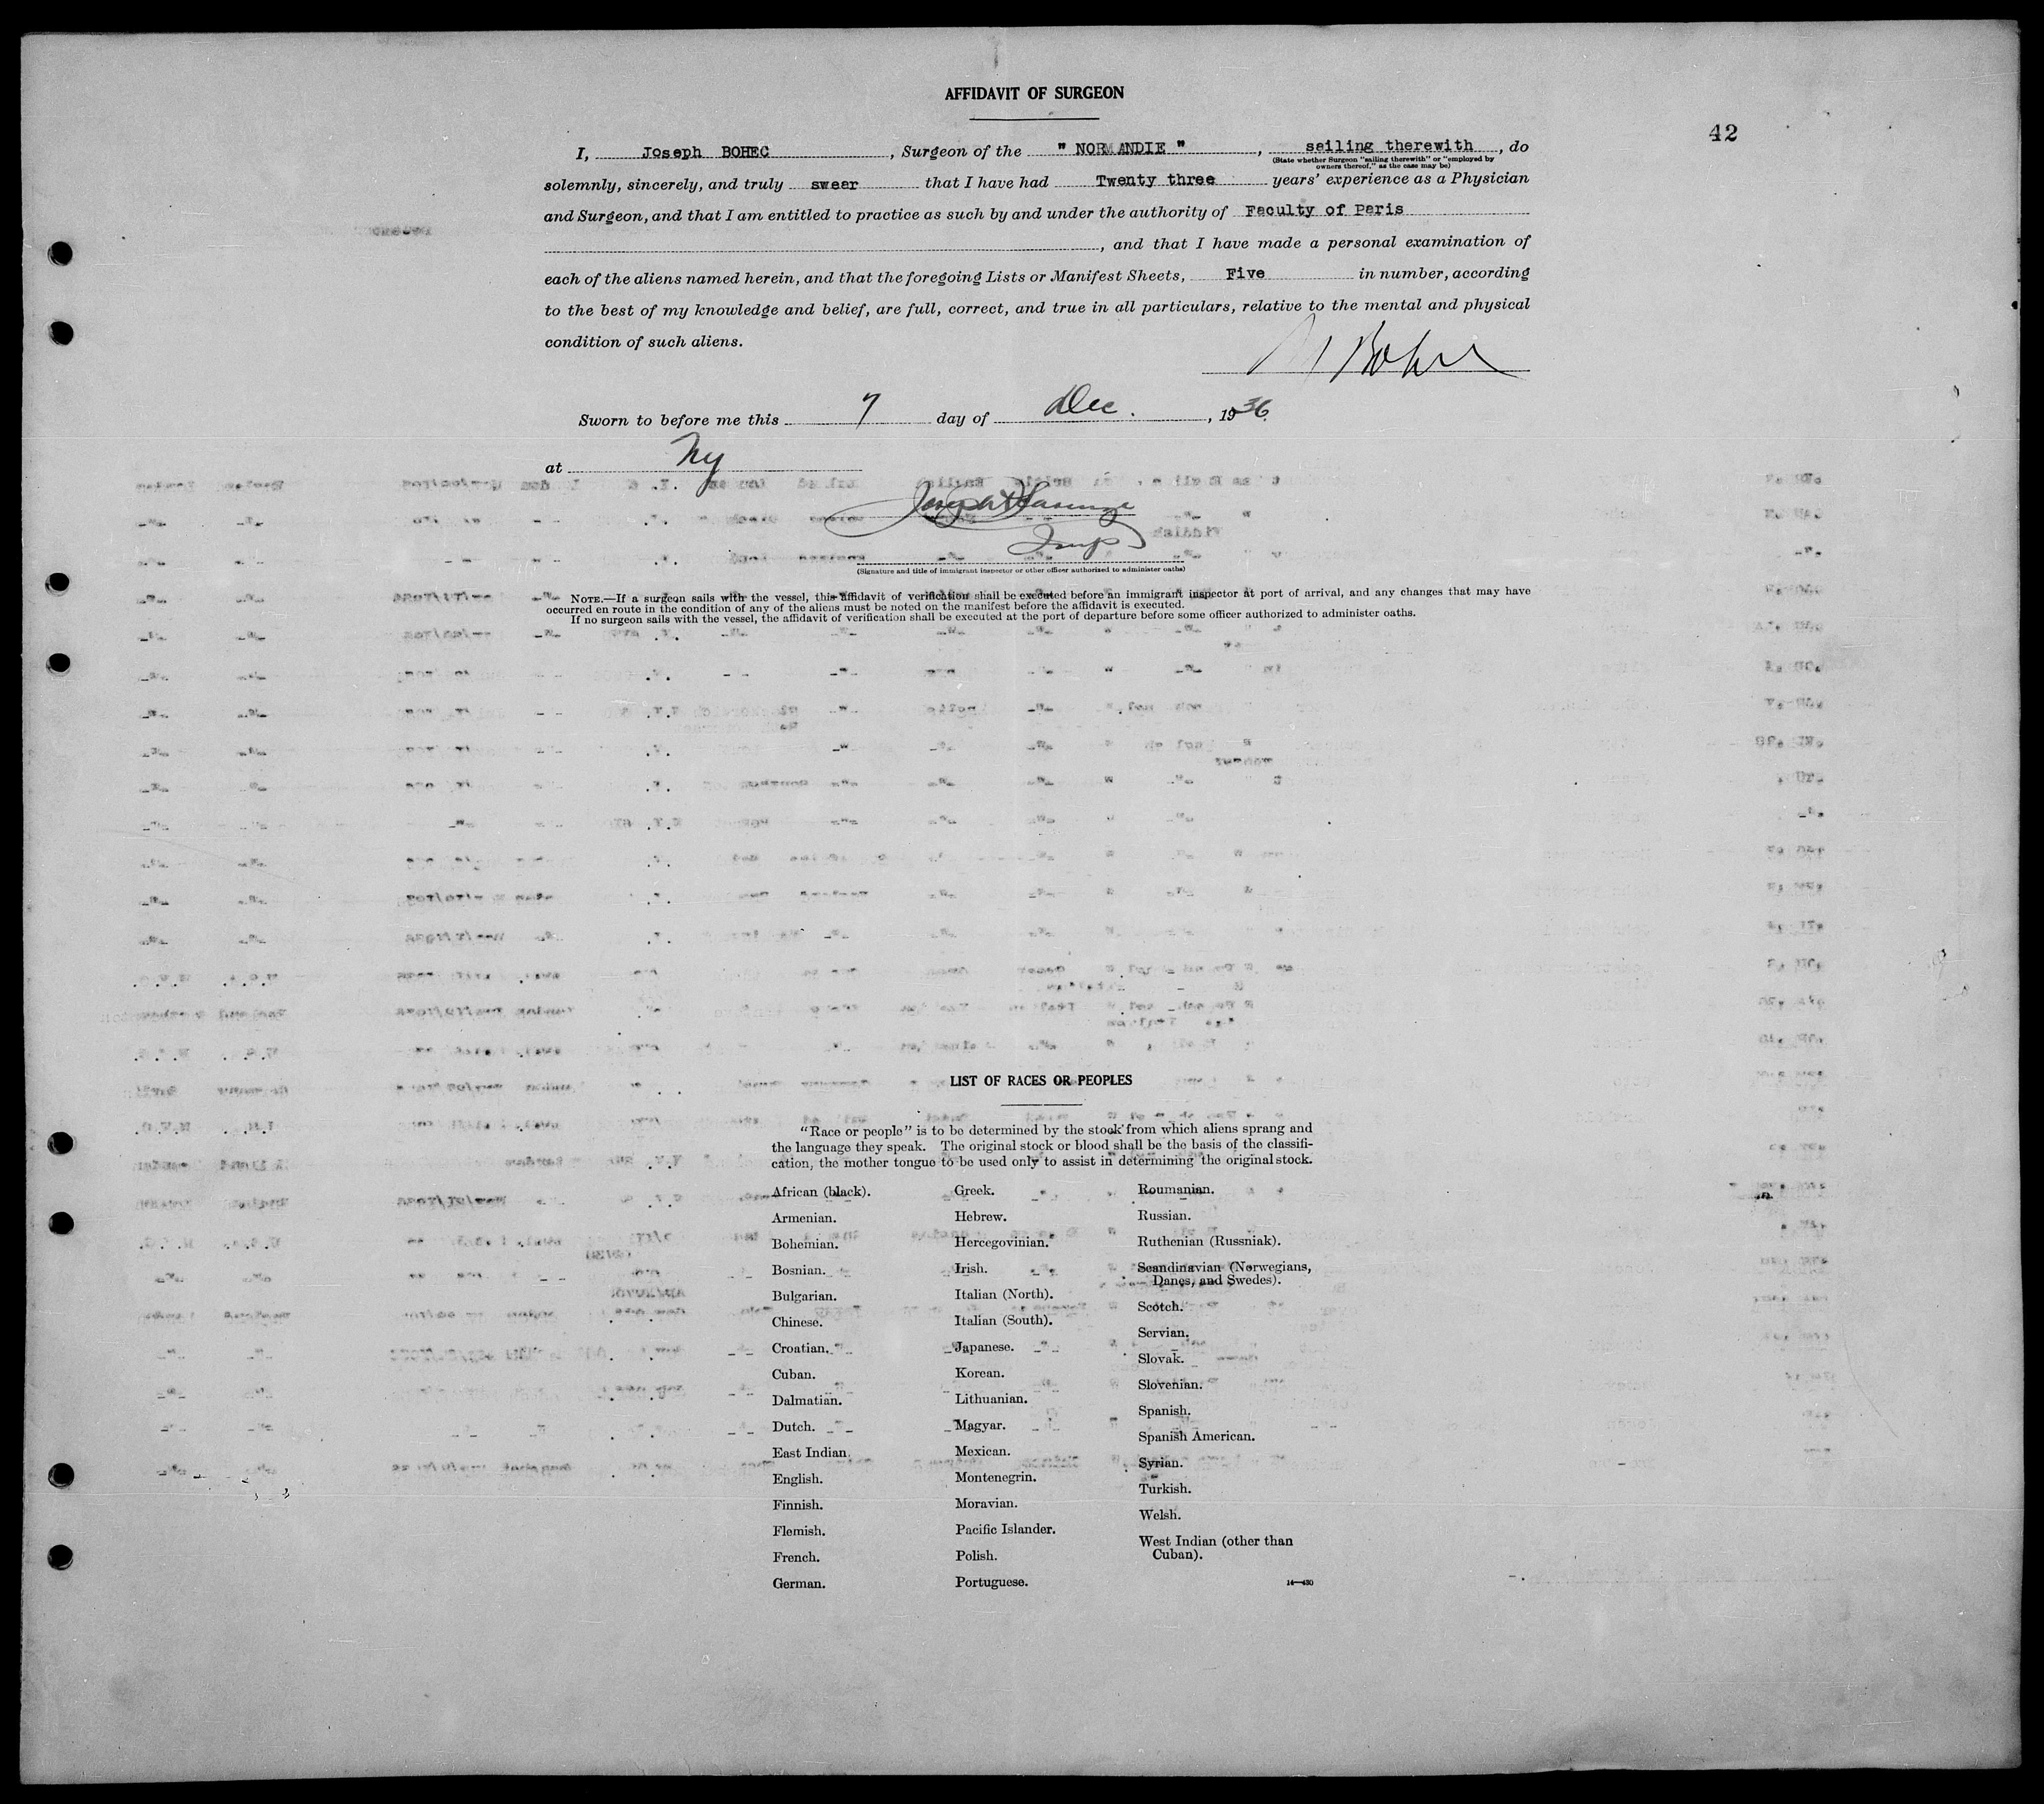 AFFIDAVIT OF SURGEON
42
I, Joseph BOHEC, Surgeon of the " NORMANDIE ", sailing therewith, do
(State whether Surgeon "sailing therewith" or "employed by
owners thereof," as the case may be)
solemnly, sincerely, and truly swear that I have had Twenty three years' experience as a Physician
and Surgeon, and that I am entitled to practice as such by and under the authority of Faculty of Paris
, and that I have made a personal examination of
each of the aliens named herein, and that the foregoing Lists or Manifest Sheets, Five in number, according
to the best of my knowledge and belief, are full, correct, and true in all particulars, relative to the mental and physical
condition of such aliens.
Sworn to before me this 7 day of Dec. , 1936
at Ny
Joseph
Insp
(Signature and title of immigrant inspector or other officer authorized to administer oaths)
NOTE.—If a surgeon sails with the vessel, this affidavit of verification shall be executed before an immigrant inspector at port of arrival, and any changes that may have
occurred en route in the condition of any of the aliens must be noted on the manifest before the affidavit is executed.
If no surgeon sails with the vessel, the affidavit of verification shall be executed at the port of departure before some officer authorized to administer oaths.
LIST OF RACES OR PEOPLES
"Race or people" is to be determined by the stock from which aliens sprang and
the language they speak. The original stock or blood shall be the basis of the classifi-
cation, the mother tongue to be used only to assist in determining the original stock.
African (black).
Armenian.
Bohemian.
Bosnian.
Bulgarian.
Chinese.
Croatian.
Cuban.
Dalmatian.
Dutch.
East Indian.
English.
Finnish.
Flemish.
French.
German.
Greek.
Hebrew.
Hercegovinian.
Irish.
Italian (North).
Italian (South).
Japanese.
Korean.
Lithuanian.
Magyar.
Mexican.
Montenegrin.
Moravian.
Pacific Islander.
Polish.
Portuguese.
Roumanian.
Russian.
Ruthenian (Russniak).
Scandinavian (Norwegians,
Danes, and Swedes).
Scotch.
Servian.
Slovak.
Slovenian.
Spanish.
Spanish American.
Syrian.
Turkish.
Welsh.
West Indian (other than
Cuban).
14—430